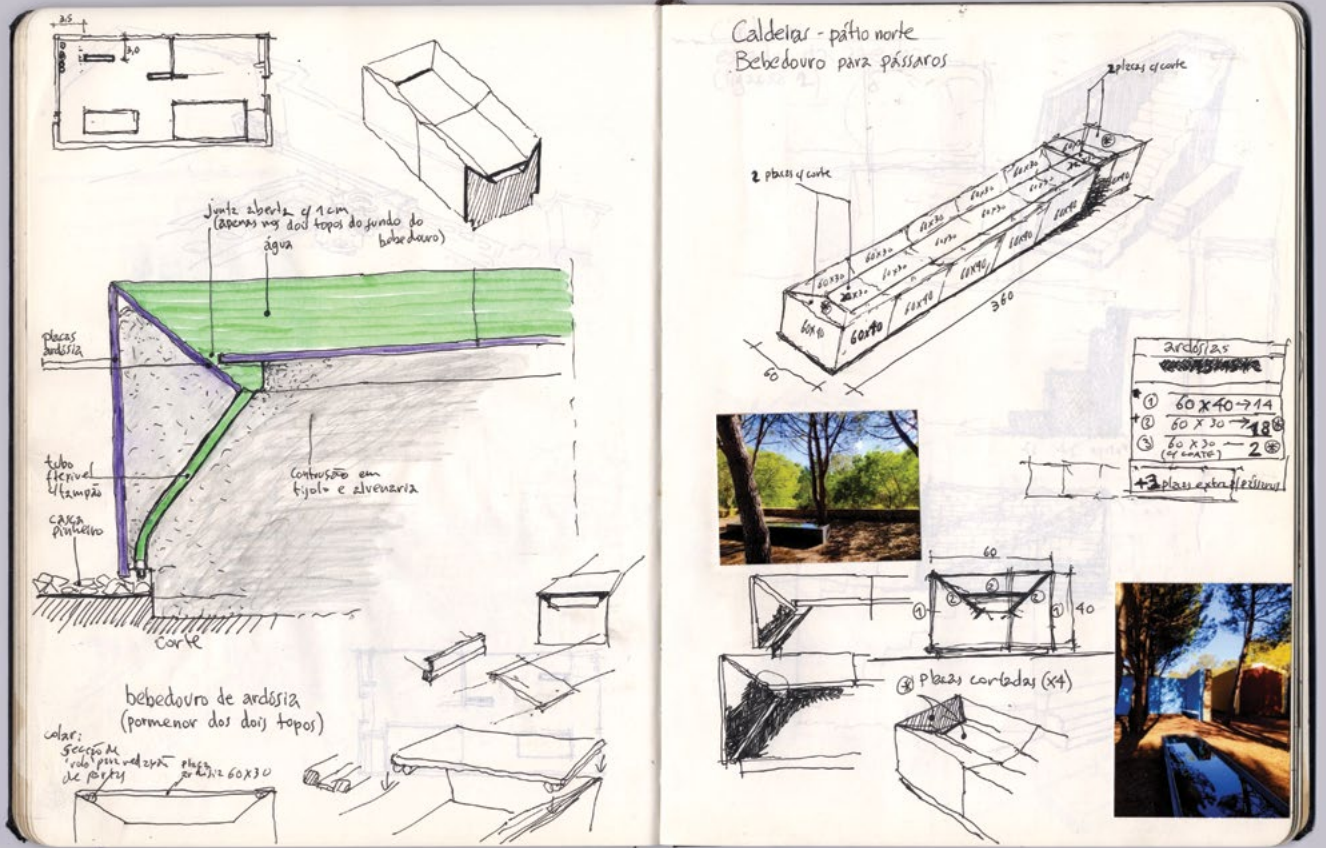 3,5
3,0
junta aberta c/ 1 cm
(apenas nos dois topos do fundo do
bebedouro)
água
placas
ardósia
tubo
flexível
c/ tampão
casca
pinheiro
Contrusão em
tijolo e alvenaria
corte
bebedouro de ardósia
(pormenor dos dois topos)
colar:
secção de
para vedação
de portas
placa
ardósia 60x30
Caldeiras - pátio norte
Bebedouro para pássaros
2 placas c/ corte
2 placas c/ corte
60x30
60x30
60x30
60x30
60x30
60x30
60x30
60x30
60x40
60x40
60x40
60x40
60x40
60x40
60x40
360
60
ardósias
① 60 x 40 → 14
② 60 x 30 → 18
③ 60 x 30 — 2
(c/ CORTE)
+3 placas extra p/ pássaros
60
① ② ② ② ①
40
placas cortadas (x4)